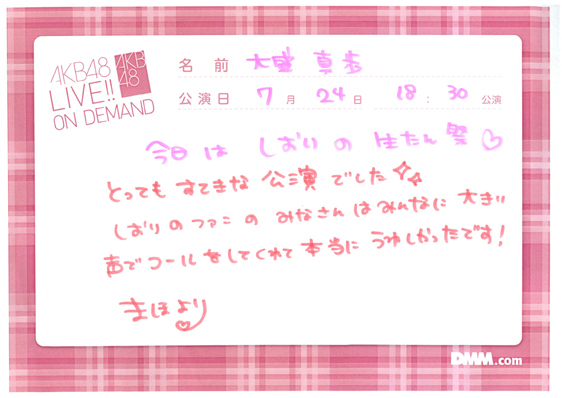 AKB48
LIVE!!
ON DEMAND
AKB
48
名前 大盛真歩
公演日 7月24日 18:30公演
今日は しおりの 生たん祭♡
とっても すてきな 公演 でした
しおりのファンの みなさんはみんなに 大きい
声でコールをしてくれて本当に うれしかったです!
まほより♡
DMM.com